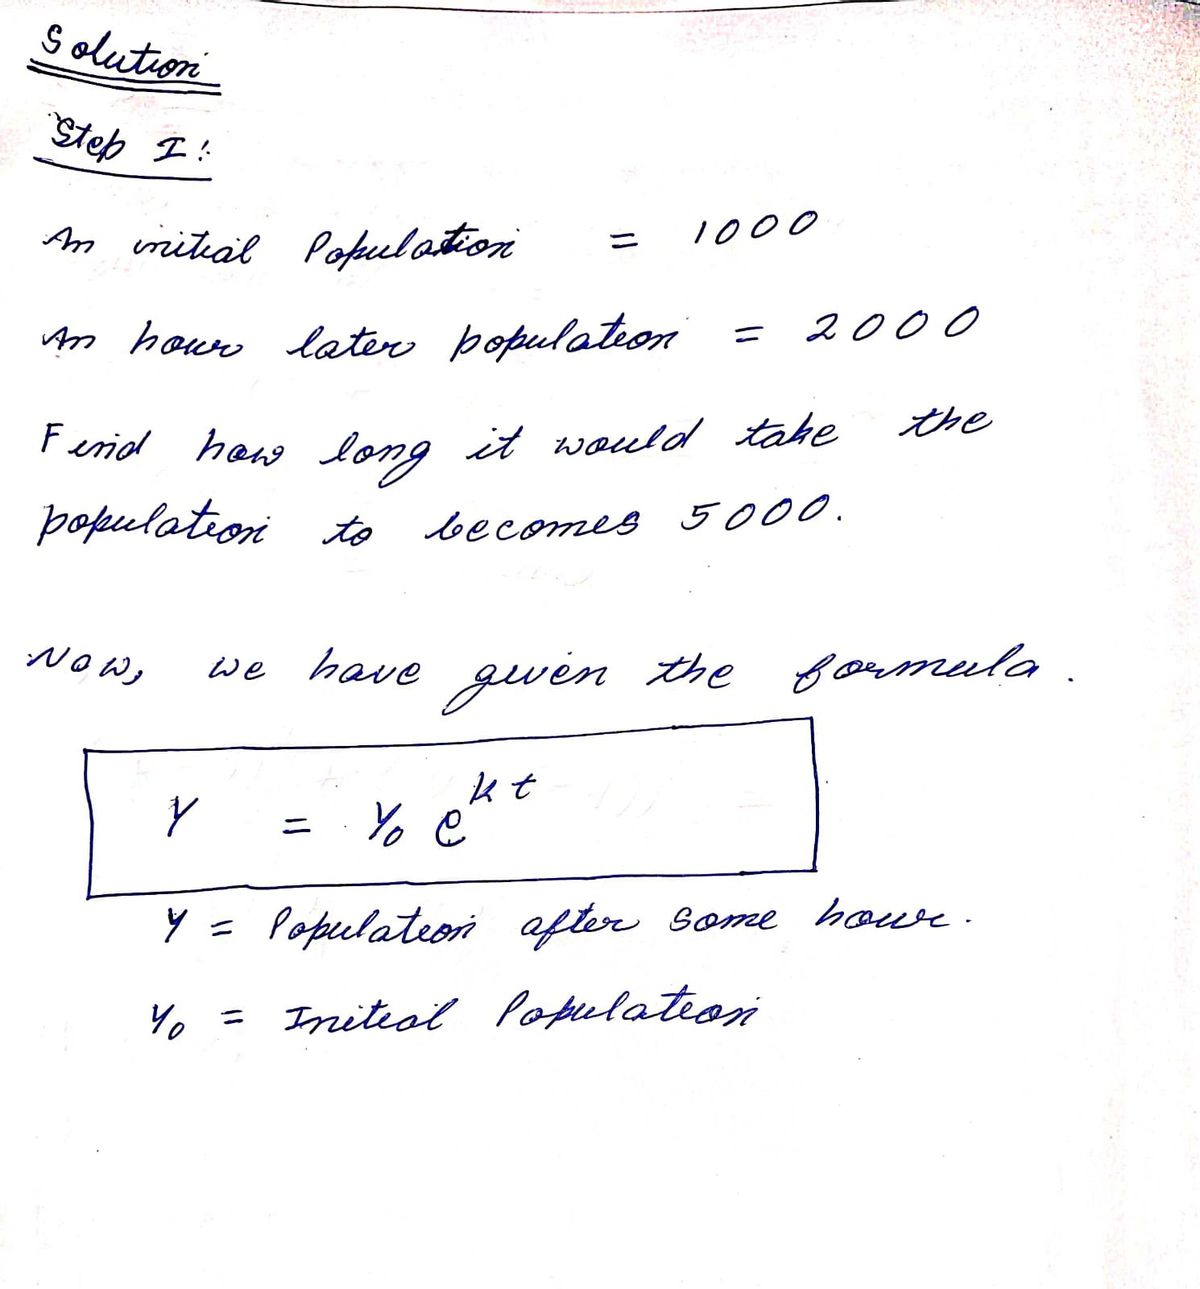 Solution
Step I:
An initial Population = 1000
An hour later population = 2000
Find how long it would take the
population to becomes 5000.
Now, we have given the formula.
Y = Y₀ e^kt
Y = Population after some hour.
Y₀ = Initial Population